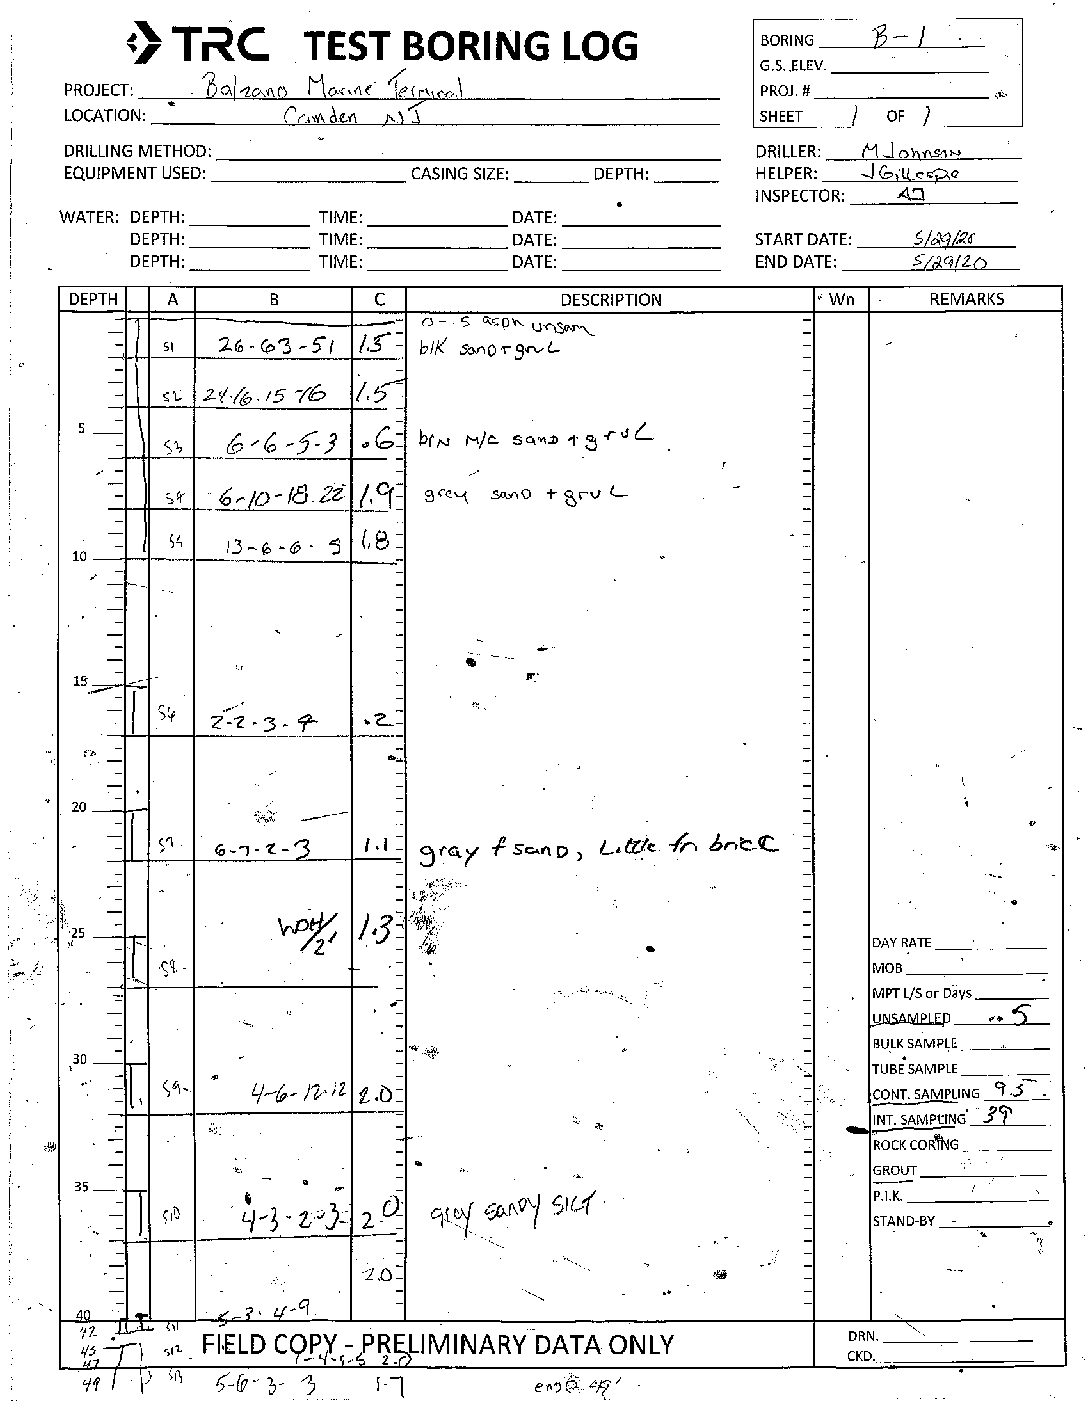 TRC TEST BORING LOG
BORING B-1
G.S. ELEV.
PROJECT: Balzano Marine Terminal
PROJ. #
LOCATION: Camden NJ
SHEET 1 OF 1
DRILLING METHOD:
DRILLER: M Johnson
EQUIPMENT USED: CASING SIZE: DEPTH:
HELPER: J Gillespie
INSPECTOR: AJ
WATER: DEPTH: TIME: DATE:
DEPTH: TIME: DATE:
START DATE: 5/29/20
DEPTH: TIME: DATE:
END DATE: 5/29/20
DEPTH A B C DESCRIPTION Wn REMARKS
0-.5 asph unsam
S1 26-63-51 1.5 blk sand + grvL
S2 24-16-15-16 1.5
5 S3 6-6-5-3 .6 brN M/C sand + grvL
S4 6-10-18-22 1.9 grey sand + grvL
S5 13-6-6-5 1.8
10
15
S6 2-2-3-4 .2
20
S7 6-7-2-3 1.1 gray f sand, Little fn brick
25 WOH/2' 1.3
S8
DAY RATE
MOB
MPT L/S or Days
UNSAMPLED .5
BULK SAMPLE
30
TUBE SAMPLE
S9 4-6-12-12 2.0
CONT. SAMPLING 9.5
INT. SAMPLING 39
ROCK CORING
GROUT
35
P.I.K.
S10 4-3-2-3 2.0 gray sandy SILT
STAND-BY
2.0
40 5-3-4-9
42 S11
45 S12 FIELD COPY - PRELIMINARY DATA ONLY
DRN.
47 2.0
CKD.
49 S13 5-6-3-3 1.7 end @ 49'